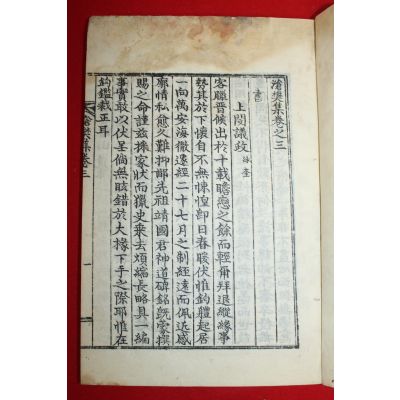 滄樊集卷之三
書
上閔議政 詠奎
客臘晉候出於十載瞻戀之餘而輕爾拜退縱緣事
勢其於下懷自不無悚恒卽日春暖伏惟鈞體起居
一向萬安海徹遠經二十七月之制經遠而佩近感
廓情私愈久難抑鄙先祖靖國君神道碑銘旣蒙撰
賜之命謹玆採家狀而獵史乘去煩編長略具一編
事實敢以伏呈倘無眩錯於大椽下手之際耶惟在
鈞鑑裁正耳
滄樊集卷三
一